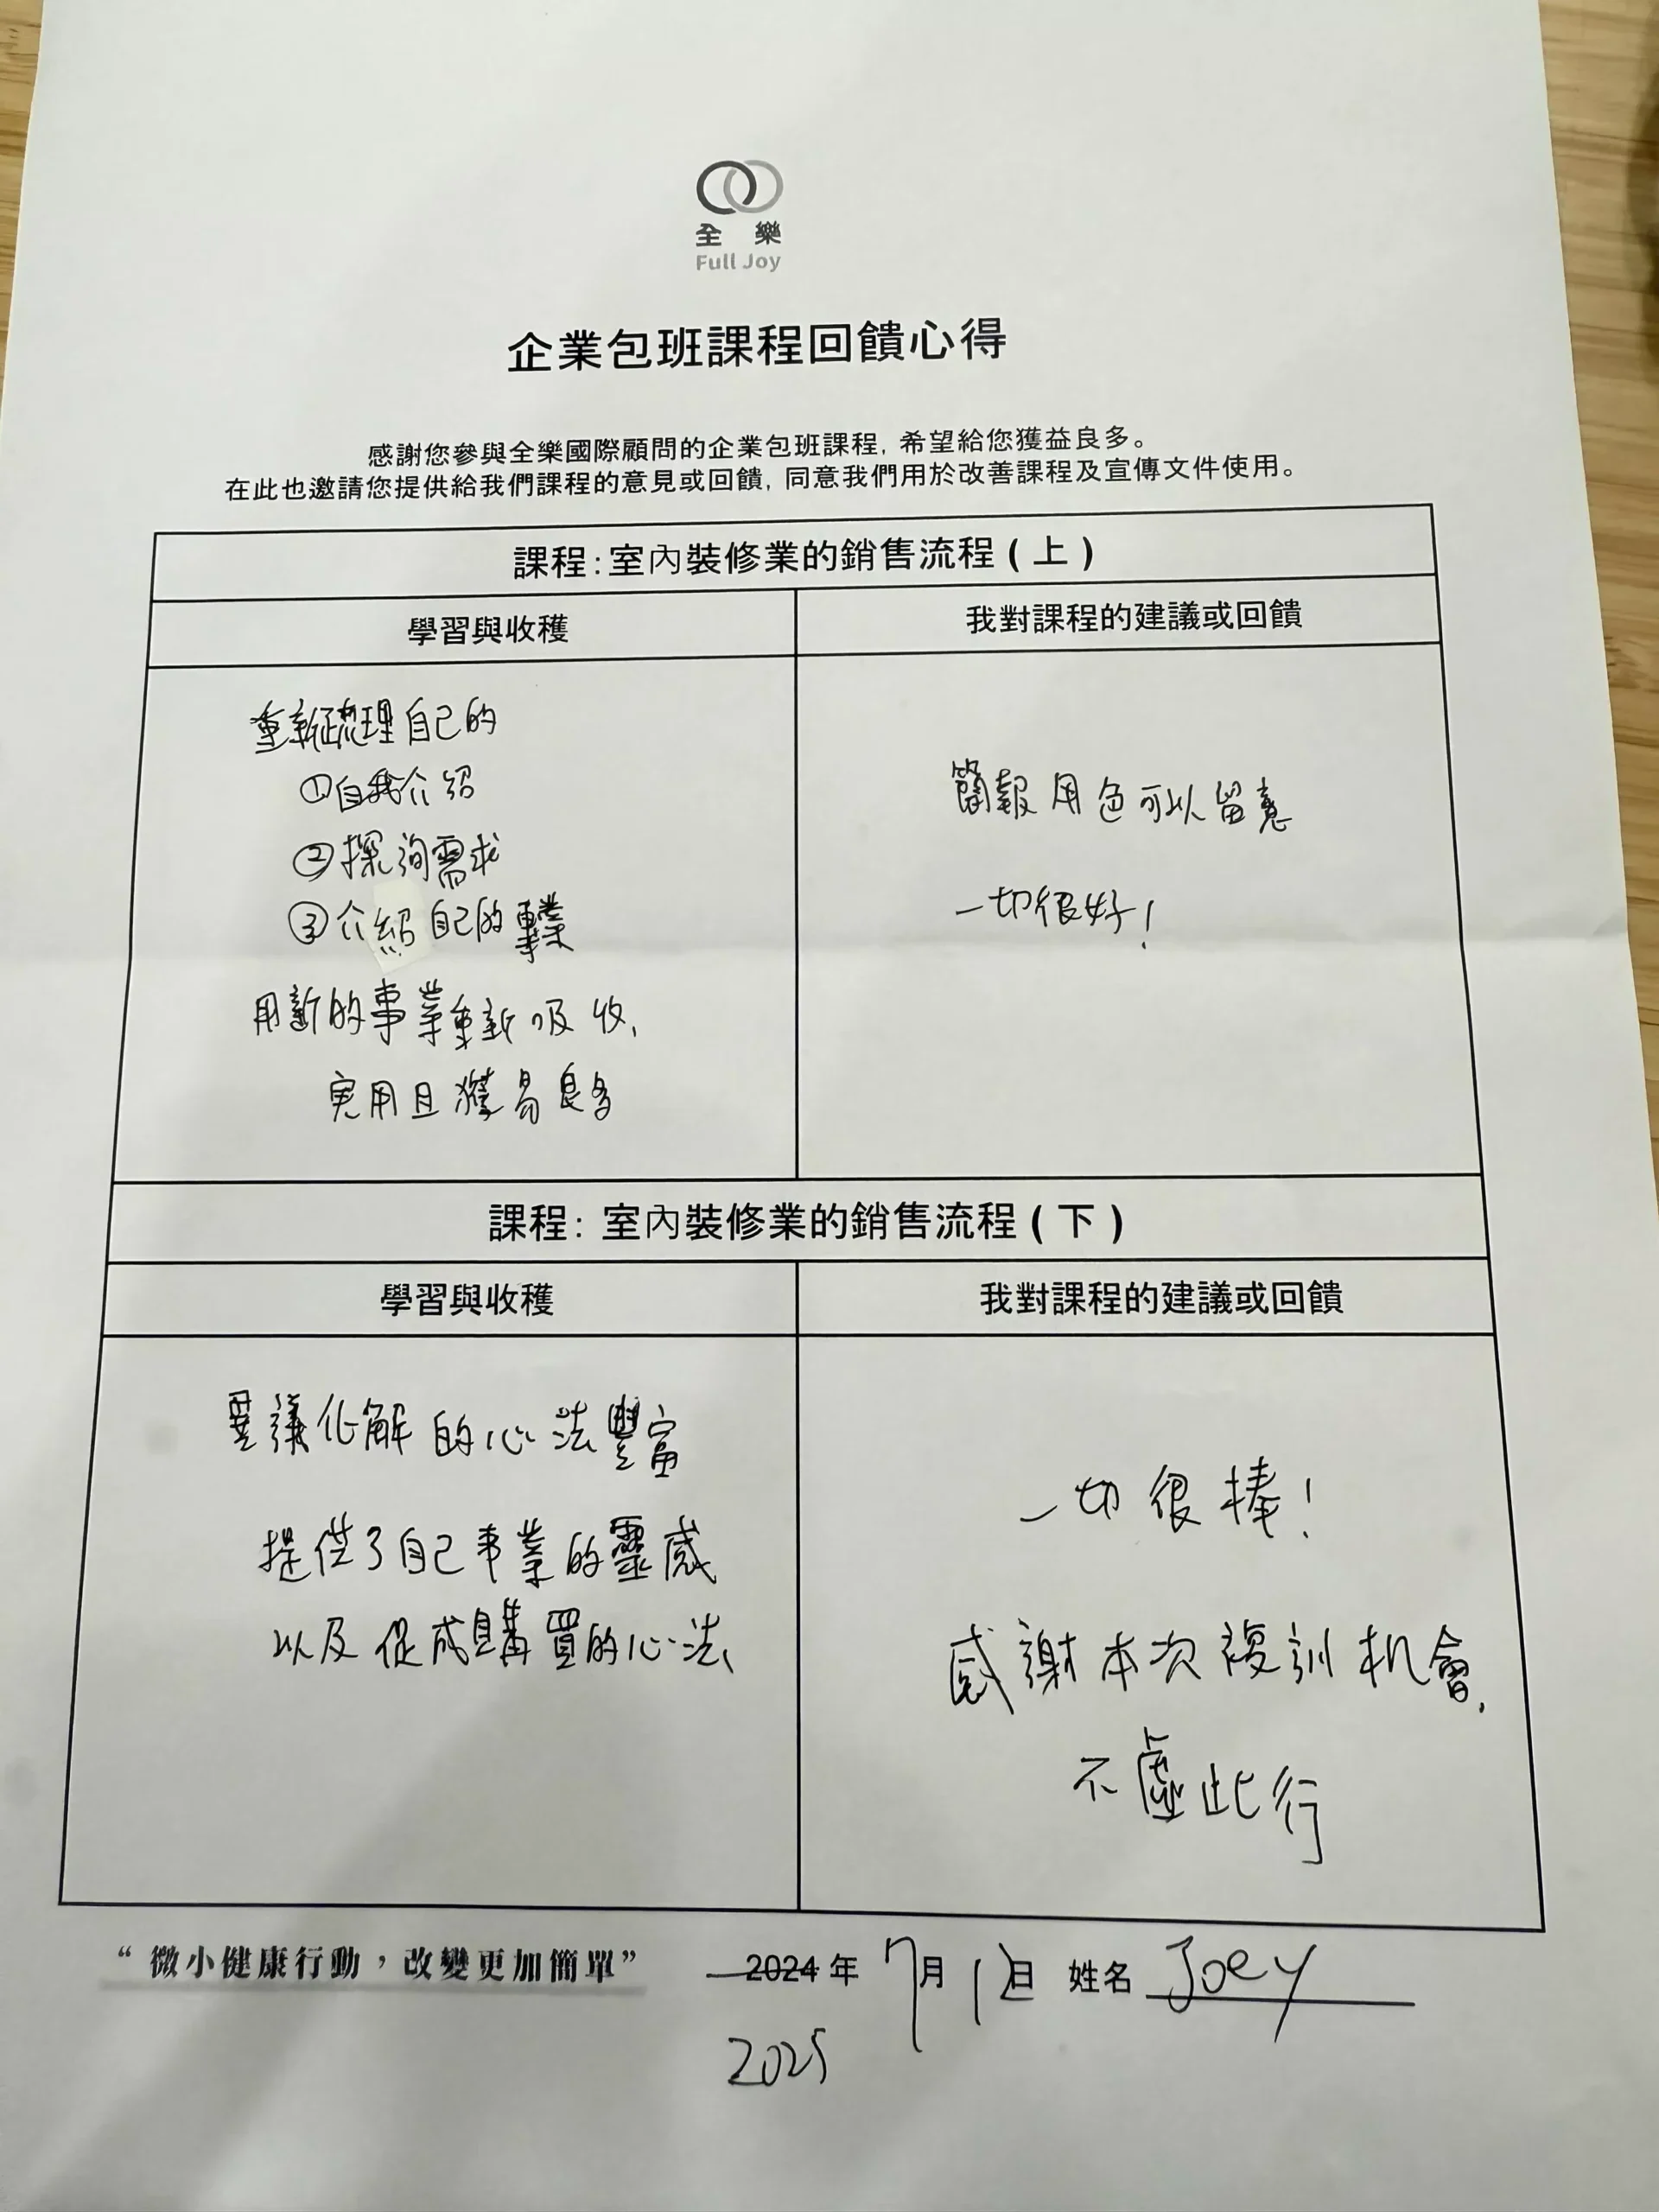 全樂
Full Joy
企業包班課程回饋心得
感謝您參與全樂國際顧問的企業包班課程, 希望給您獲益良多。
在此也邀請您提供給我們課程的意見或回饋, 同意我們用於改善課程及宣傳文件使用。
課程:室內裝修業的銷售流程(上)
學習與收穫
重新梳理自己的
①自我介紹
②探詢需求
③介紹自己的事業
用新的事業重新吸收,
実用且獲易良多
我對課程的建議或回饋
簡報用色可以留意
一切很好!
課程: 室內裝修業的銷售流程(下)
學習與收穫
異議化解的心法豐富
提供了自己事業的靈感
以及促成購買的心法、
我對課程的建議或回饋
一切很棒!
感謝本次複訓机會,
不虛此行
“微小健康行動,改變更加簡單”
2024年7月12日 姓名 Joey
2025